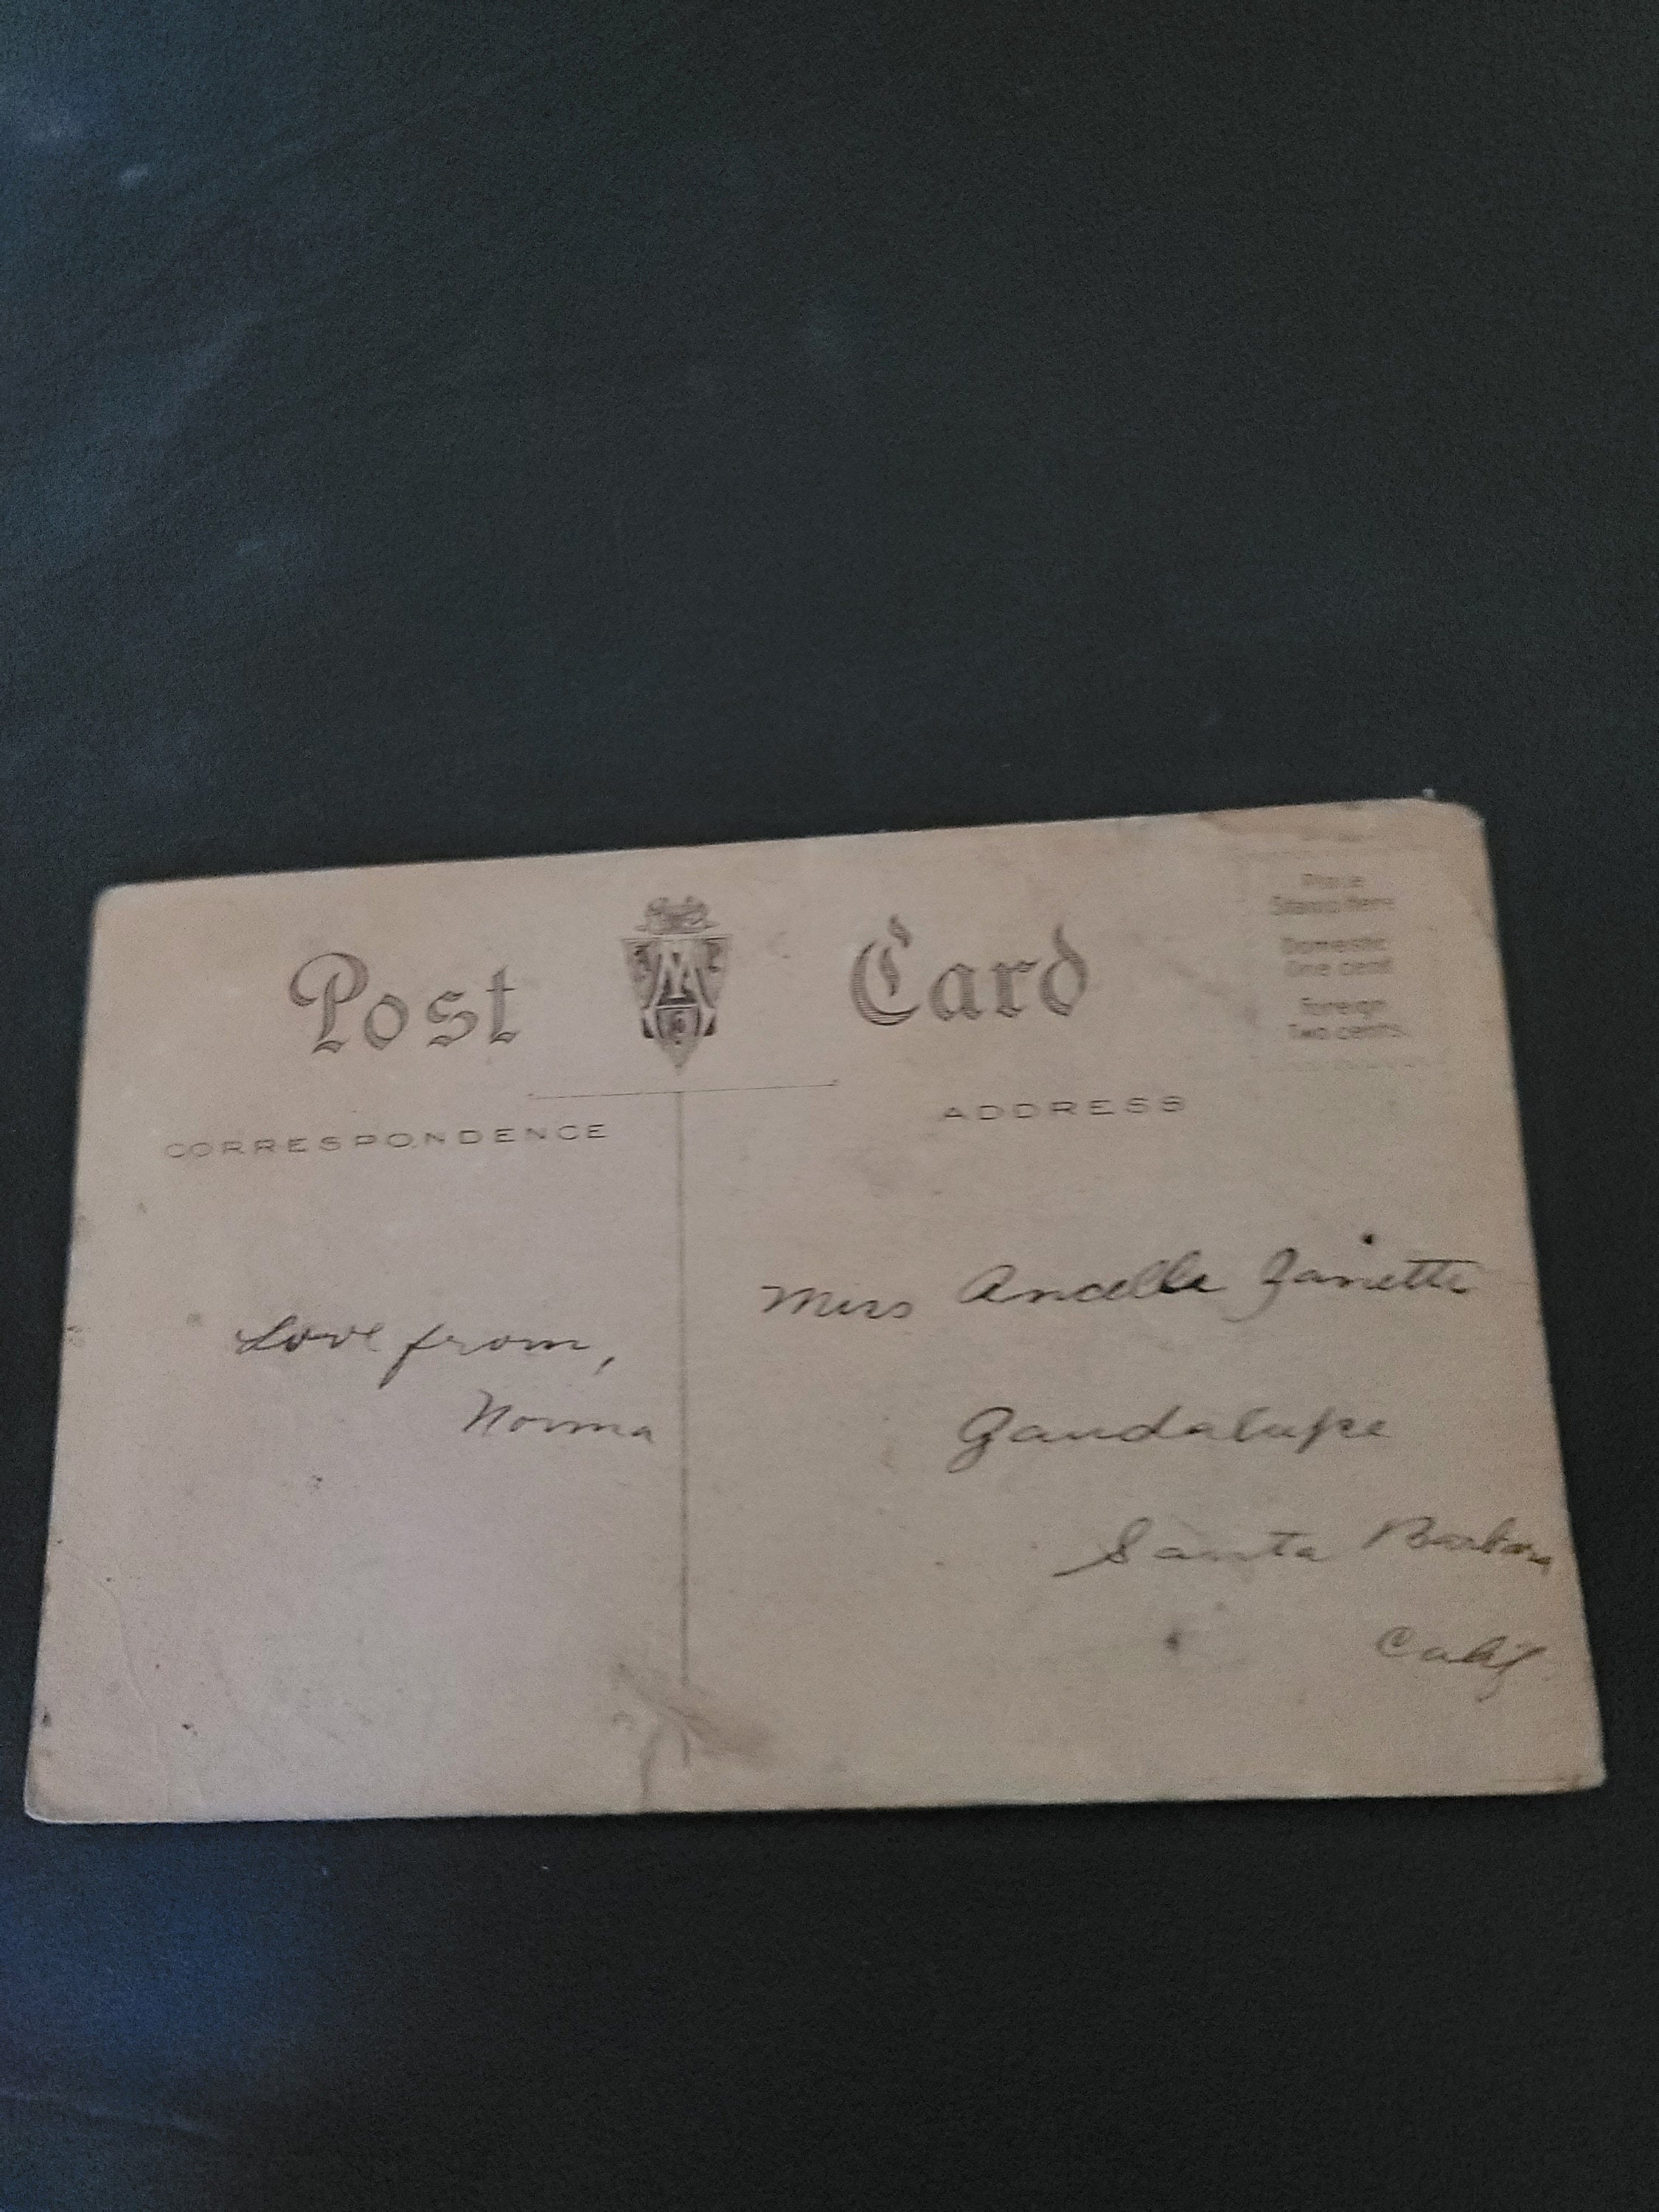 Post Card
Place
Stamp Here
Domestic
One cent
Foreign
Two cents
CORRESPONDENCE
ADDRESS
Love from,
Norma
Miss Ancella Zanetti
Gaudalupe
Santa Barbara
Calif.